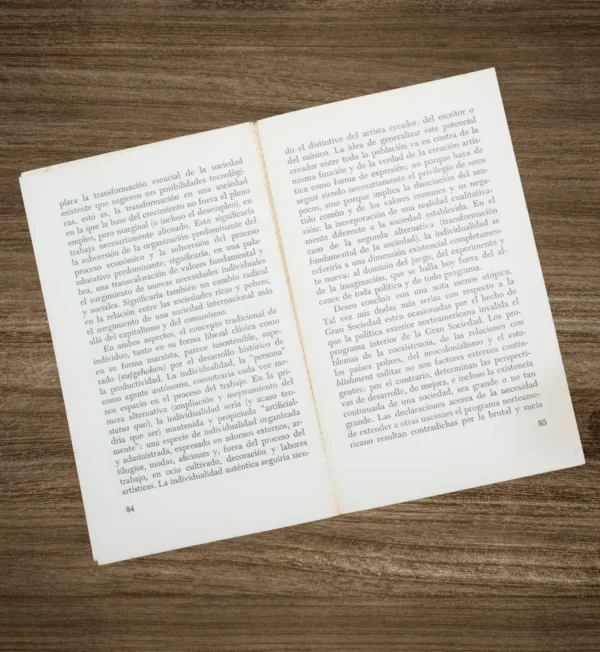 plara la transformación esencial de la sociedad
existente que sugieren sus posibilidades tecnológi-
cas, esto es, la transformación en una sociedad
en la que la base del crecimiento no fuera el pleno
empleo, pero marginal (o incluso el desempleo), en
trabajo necesariamente alienado. Esto significaría
la subversión de la organización predominante del
proceso económico y la subversión del proceso
educativo predominante; significaría, en una pala-
bra, una transvaloración de valores fundamental y
el surgimiento de nuevas necesidades individuales
y sociales. Significaría también un cambio radical
en la relación entre las sociedades ricas y pobres,
el surgimiento de una sociedad internacional más
allá del capitalismo y del comunismo.
En ambos aspectos, el concepto tradicional de
individuo, tanto en su forma liberal clásica como
en su forma marxista, parece insostenible, supe-
rado (aufgehohen) por el desarrollo histórico de
la productividad. La individualidad, la "persona"
como agente autónomo, encontraría cada vez me-
nos espacio en el proceso del trabajo. En la pri-
mera alternativa (ampliación y mejoramiento del
status quo), la individualidad sería (y acaso ten-
dría que ser) mantenida y propiciada "artificial-
mente"; una especie de individualidad organizada
y administrada, expresada en adornos externos, ar-
tilugios, modas, aficiones y, fuera del proceso del
trabajo, en ocio cultivado, decoración y labores
artísticas. La individualidad auténtica seguiría sien-
84
do el distintivo del artista creador, del escritor o
del músico. La idea de generalizar este potencial
creador entre toda la población va en contra de la
misma función y de la verdad de la creación artís-
tica como forma de expresión; no porque haya de
seguir siendo necesariamente el privilegio de unos
pocos, sino porque implica la disociación del sen-
tido común y de los valores comunes y su nega-
ción: la incorporación de una realidad cualitativa-
mente diferente a la sociedad establecida. En el
caso de la segunda alternativa (transformación
fundamental de la sociedad), la individualidad se
referiría a una dimensión existencial completamen-
te nueva: al dominio del juego, del experimento y
de la imaginación, que se halla hoy fuera del al-
cance de toda política y de todo programa.
Deseo concluir con una nota menos utópica.
Tal vez mis dudas más serias con respecto a la
Gran Sociedad estén ocasionadas por el hecho de
que la política exterior norteamericana invalida el
programa interior de la Gran Sociedad. Los pro-
blemas de la coexistencia, de las relaciones con
los países pobres, del neocolonialismo y el esta-
blishment militar no son factores externos contin-
gentes: por el contrario, determinan las perspecti-
vas de desarrollo, de mejora, e incluso la existencia
continuada de una sociedad, sea grande o no tan
grande. Las declaraciones acerca de la necesidad
de extender a otras naciones el programa norteame-
ricano resultan contradichas por la brutal y sucia
85